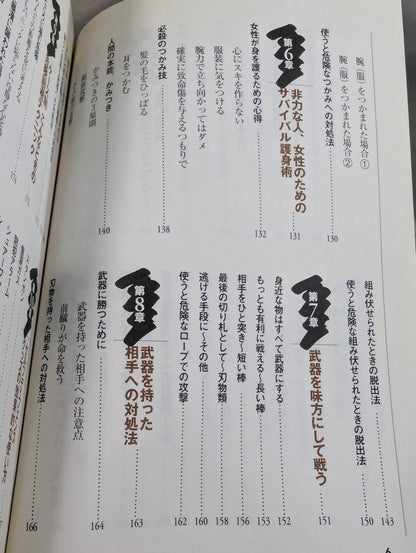 腕（服）をつかまれた場合①
腕（服）をつかまれた場合②
使うと危険なつかみへの対処法 130
第6章
非力な人、女性のための
サバイバル護身術 131
女性が身を護るための心得 132
心にスキを作らない
服装に気をつける
腕力で立ち向かってはダメ
確実に致命傷を与えるつもりで
必殺のつかみ技 138
髪の毛をひっぱる
耳をつかむ
人間の本能、かみつき 140
かみつきの3原則
組み伏せられたときの脱出法 143
使うと危険な組み伏せられたときの脱出法 150
第7章
武器を味方にして戦う 151
身近な物はすべて武器にする 152
もっとも有利に戦える〜長い棒 153
相手をひと突き〜短い棒 156
最後の切り札として〜刃物類 158
逃げる手段に〜その他 160
使うと危険なロープでの攻撃 162
第8章
武器を持った
相手への対処法 163
武器に勝つために 164
武器を持った相手への注意点
前蹴りが命を救う
刃物を持った相手への対処法 166
6